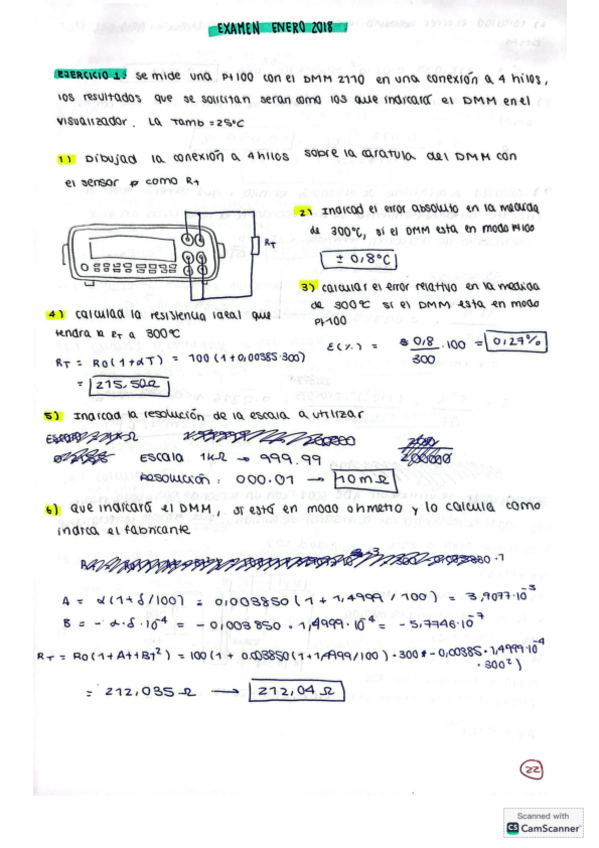 EXAMEN ENERO 2018
EJERCICIO 1: Se mide una Pt100 con el DMM 2110 en una conexión a 4 hilos,
los resultados que se solicitan seran como los que indicará el DMM en el
visualizador. La Tamb = 25ºC
1) Dibujad la conexión a 4 hilos sobre la carátula del DMM con
el sensor como RT
RT
2) Indicad el error absoluto en la medida
de 300ºC, si el DMM está en modo Pt100
± 0,8ºC
3) calcular el error relativo en la medida
de 300ºC si el DMM esta en modo
Pt100
ε(%) = 0,8/300 · 100 = 0,27%
4) calculad la resistencia ideal que
tendra la RT a 300ºC
RT = R0(1+αT) = 100(1+0,00385·300)
= 215,50Ω
5) Indicad la resolución de la escala a utilizar
Escala 1kΩ → 999.99
Resolución: 000.01 → 10mΩ
6) Que indicará el DMM, si está en modo ohmetro y lo calcula como
indica el fabricante
A = α(1+δ/100) = 0,003850(1+1,4999/100) = 3,9077·10⁻³
B = -α·δ·10⁻⁴ = -0,003850·1,4999·10⁻⁴ = -5,7746·10⁻⁷
RT = R0(1+A+1BT²) = 100(1+0.003850(1+1,4999/100)·300 -0,00385·1,4999·10⁻⁴
·300²)
= 212,035Ω → 212,04Ω
22
Scanned with
CS CamScanner